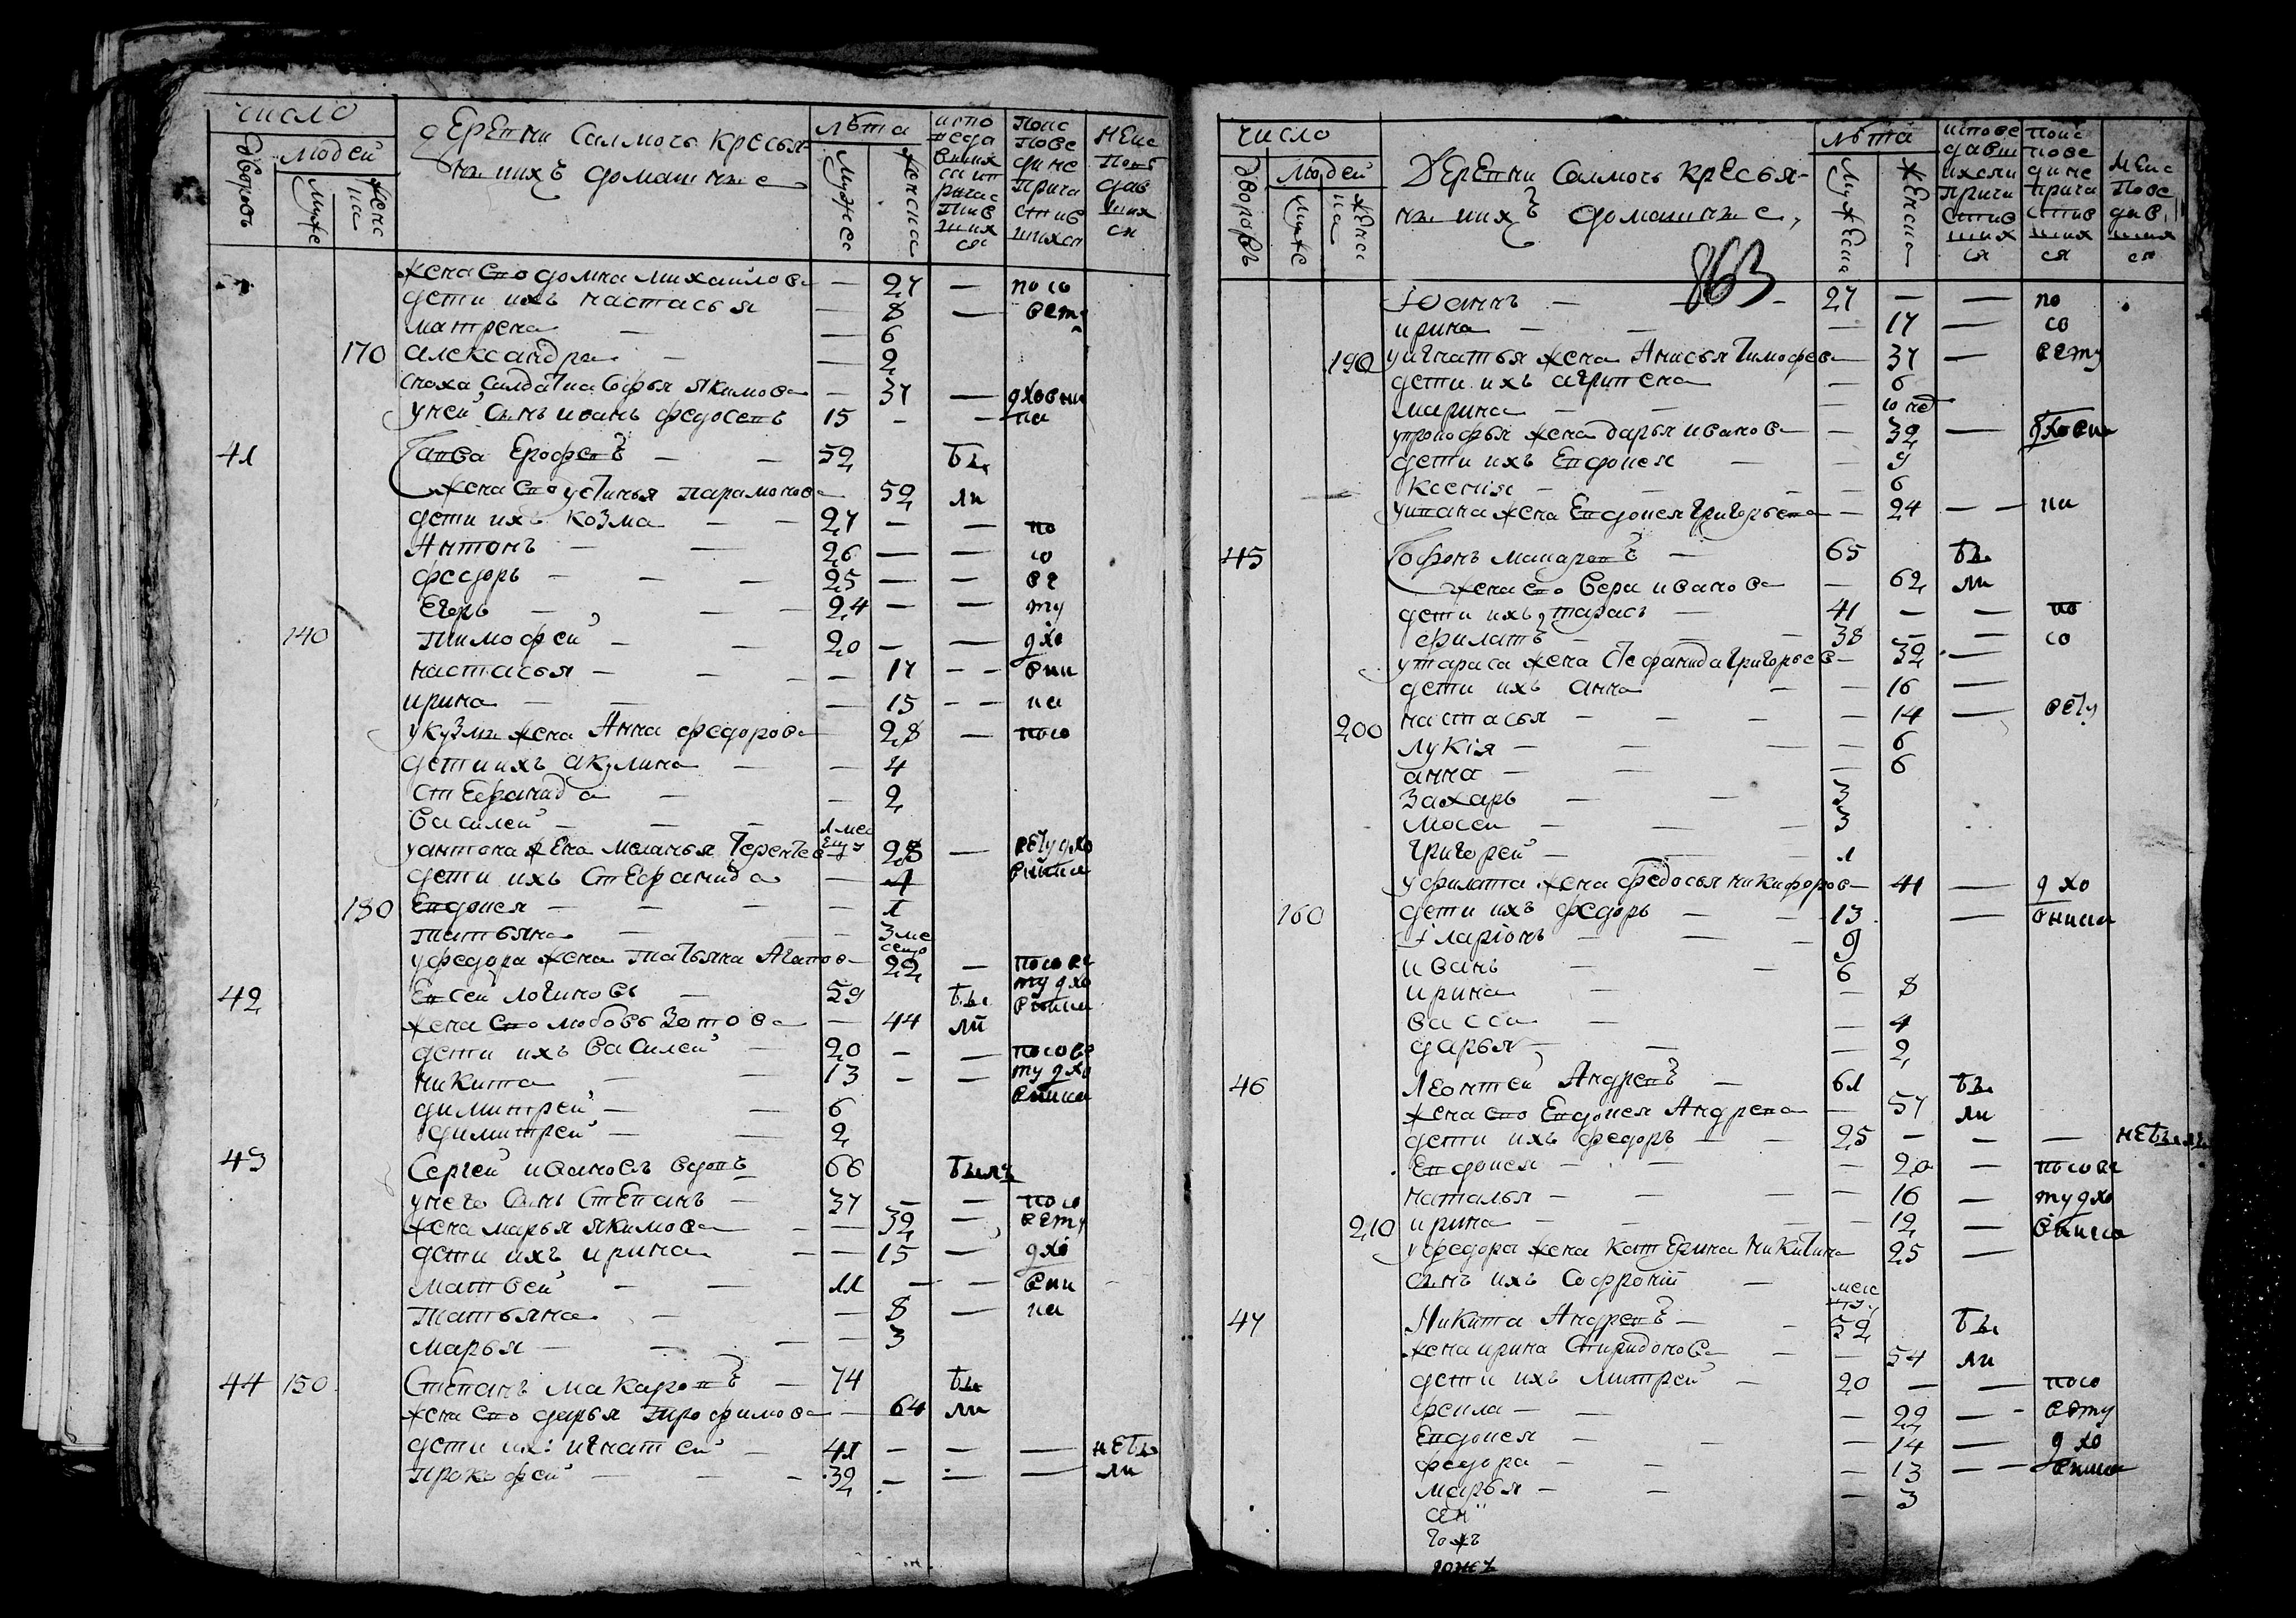 число
деревни Салмось крестья-
нъ ихъ домашние
лѣта
дворовъ
людей
муже
женс
ка
мужеска
женска
испо
веда
вших
ся и п
ричас
тив
ших
ся
поис
пове
дине
прича
стив
шихся
неис
повѣ
дав
ших
ся
жена ево домна михаилова — 27 — по со
дети ихъ настасья — 8 — вету
матрена — 6
170 александра — 2
сноха салдатка софья якимова — 37 — дховни
у ней сынъ иванъ федосеевъ 15 — — ка
41 Савва Ерофеевъ — — 52 бы
жена ево устинья парамонова 52 ли
дети ихъ козма — — 27 — — по
Антонъ — — 26 — — со
федоръ — — — 25 — — ве
Егоръ — — — 24 — — ту
140 тимофей — — 20 — — дхо
настасья — — — — 17 — — вни
ирина — — — 15 — — ка
у кузмы жена Анна федорова 28 — посо
дети ихъ акулина — — 4
стефанида — — 2
василей — — — 1 мес
ецъ
у антона жена меланья Терентьев 28 — вету дхо
вника
дети ихъ стефанида — 4
180 Евдокея — — — — 1
татьяна — — 3 ме
сецо
у федора жена татьяна Агапов — 22 — посове
ту дхо
вника
42 Евсей логиновъ — 59 бы
жена ево любовь Зотова — 44 ли
дети ихъ василей — 20 — — посове
никита — — 13 — — ту дхо
вника
димитрей — — 6
димитрей — — 2
43 Сергей ивановъ вдовъ 66 былъ
у него сынъ Степанъ — 37 — — посо
жена марья якимова — — 32 — вету
дети ихъ ирина — — 15 — дхо
матвей — — 11 — — вни
татьяна — — 8 — ка
марья — — — — 3
44 150 Степанъ макаровъ — 74 бы
жена ево дарья трофимова — 64 ли
дети их: игнатей — 41 — — — небы
прокофей — — — 32 — — — ли
число
деревни Салмось крестья-
нъ ихъ домашние,
лѣта
дворовъ
людей
муже
женс
ка
мужеска
женска
испове
давш
ихся и
прича
стив
ших
ся
поис
пове
дине
прича
стив
ших
ся
неис
пове
дав
ших
ся
863
Юаннъ — — — 27 — — по
ирина — — — 17 — со
190 у игнатья жена Анисья Тимофев — 37 — вету
дети ихъ агрипена — 6
марина — — — 10 нед
у прокофья жена дарья иванова — 32 — дховни
дети ихъ Евдокея — — 9
ксения — — — — 6
у ивана жена Евдокея григорьева — 24 — — ка
45 Софонъ макаровъ — 65 бы
жена ево вера иванова — 62 ли
дети ихъ тарасъ — 41 — — по
филатъ — — — 38 — — со
у тараса жена Стефанида григорьев — 32 —
дети ихъ анна — — 16 —
200 настасья — — — — 14 — вету
лукія — — — — 6
анна — — — 6
захаръ — — 3
мосеи — — — 3
григорей — — — 1
у филата жена федосья никифоров — 41 — дхо
160 дети ихъ федоръ — — 13 — вника
іларіонъ — — 9
иванъ — — 6
ирина — — 8
васса — — 4
дарья — — — 2
46 Леонтей Андреевъ — 61 бы
жена ево Евдокея Андрева — 57 ли
дети ихъ федоръ — — 25 — — — небылъ
Евдокея — — — 20 — посове
наталья — — — 16 — ту дхо
210 ирина — — — — 12 — вника
у федора жена катерина никитина 25 —
сынъ ихъ Софроній — месе
цъ
47 Никита Андреевъ — — 52 бы
жена ирина Спиридонова — — 54 ли
дети ихъ митрей — 20 — — посо
фекла — — — 22 — — вету
Евдокея — — — 14 — дхо
федора — — — 13 — — вника
марья — — — 3